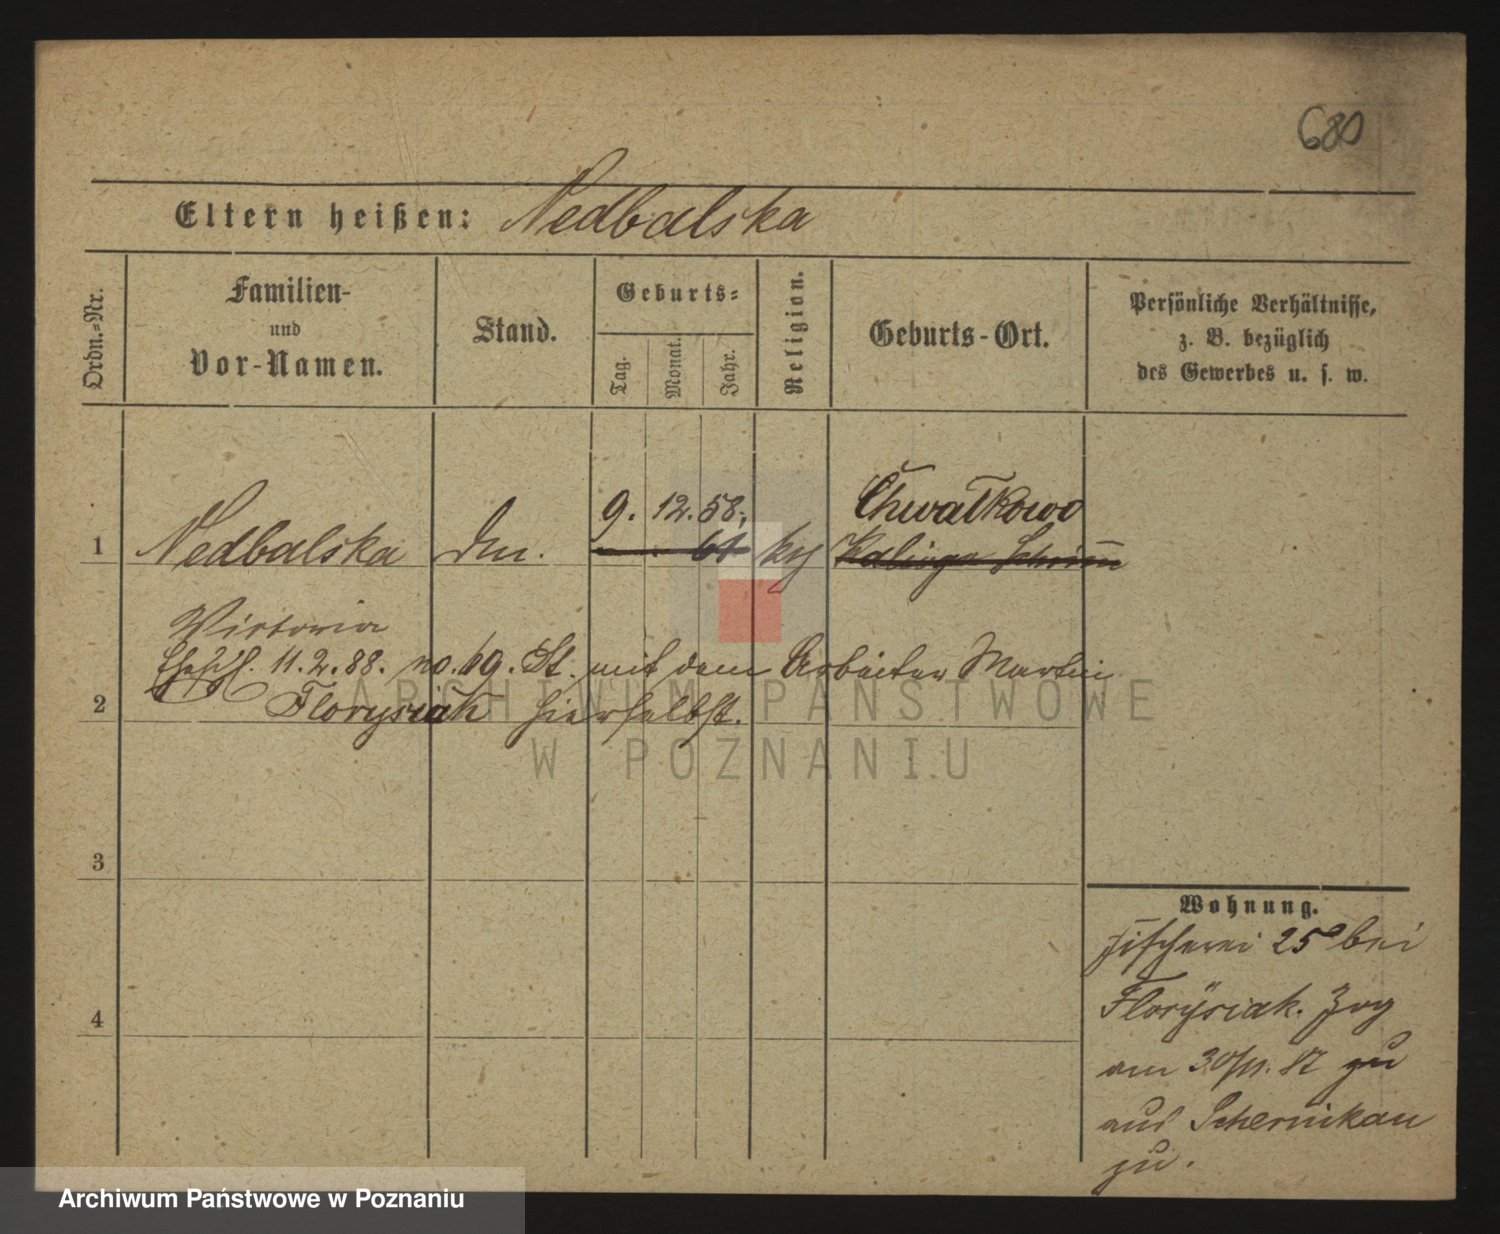 680
Eltern heißen: Nedbalska
Ordn.-Nr.
Familien-
und
Vor-Namen.
Stand.
Geburts-
Tag.
Monat.
Jahr.
Religion.
Geburts-Ort.
Persönliche Verhältnisse,
z. B. bezüglich
des Gewerbes u. s. w.
9. 12. 58. Chwałkowo
1 Nedbalska 61
Victoria
Ehesch. 11.2.88. no. 69. St. mit dem Arbeiter Martin
2 Florysiak hierselbst.
3
4
Wohnung.
Fischerei 25 bei
Florysiak. Zog
am 30/11. 87 zu
aus Schernikau
zu.
ARCHIWUM PAŃSTWOWE
W POZNANIU
Archiwum Państwowe w Poznaniu